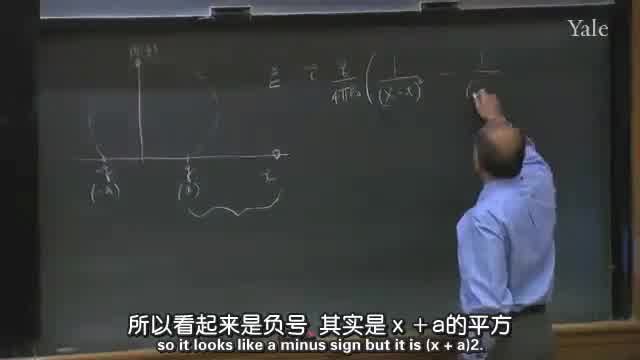 Yale
E i q/4πε₀ ( 1/(x-a)² - 1/(
-q q x
(-a) (a)
所以看起来是负号 其实是 x +a的平方
so it looks like a minus sign but it is (x + a)2.